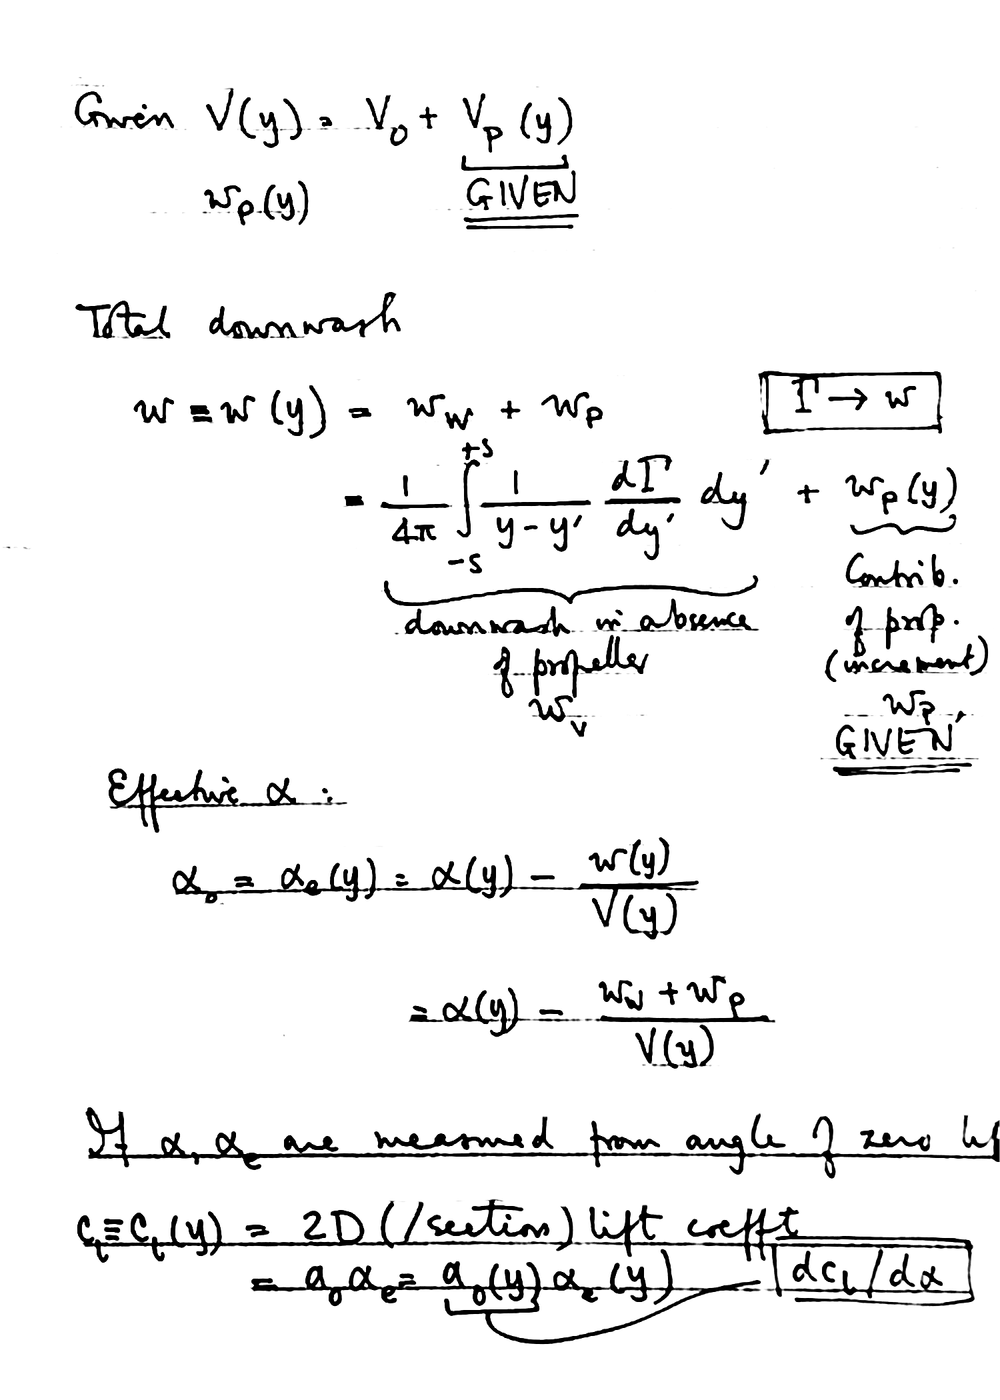 Given V(y) = V₀ + Vₚ(y)
wₚ(y) GIVEN
Total downwash
w ≡ w(y) = w_w + wₚ
Γ → w
= 1/4π ∫_{-s}^{+s} 1/(y - y′) dΓ/dy′ dy′ + wₚ(y)
downwash in absence
of propeller
w_v
Contrib.
of prop.
(increment)
wₚ,
GIVEN
Effective α :
α₀ = αₑ(y) = α(y) - w(y)/V(y)
= α(y) - (w_w + wₚ)/V(y)
If α, αₑ are measured from angle of zero lif
c_l ≡ c_l(y) = 2D (/section) lift coefft
= a₀αₑ = a₀(y) αₑ(y) dc_l/dα